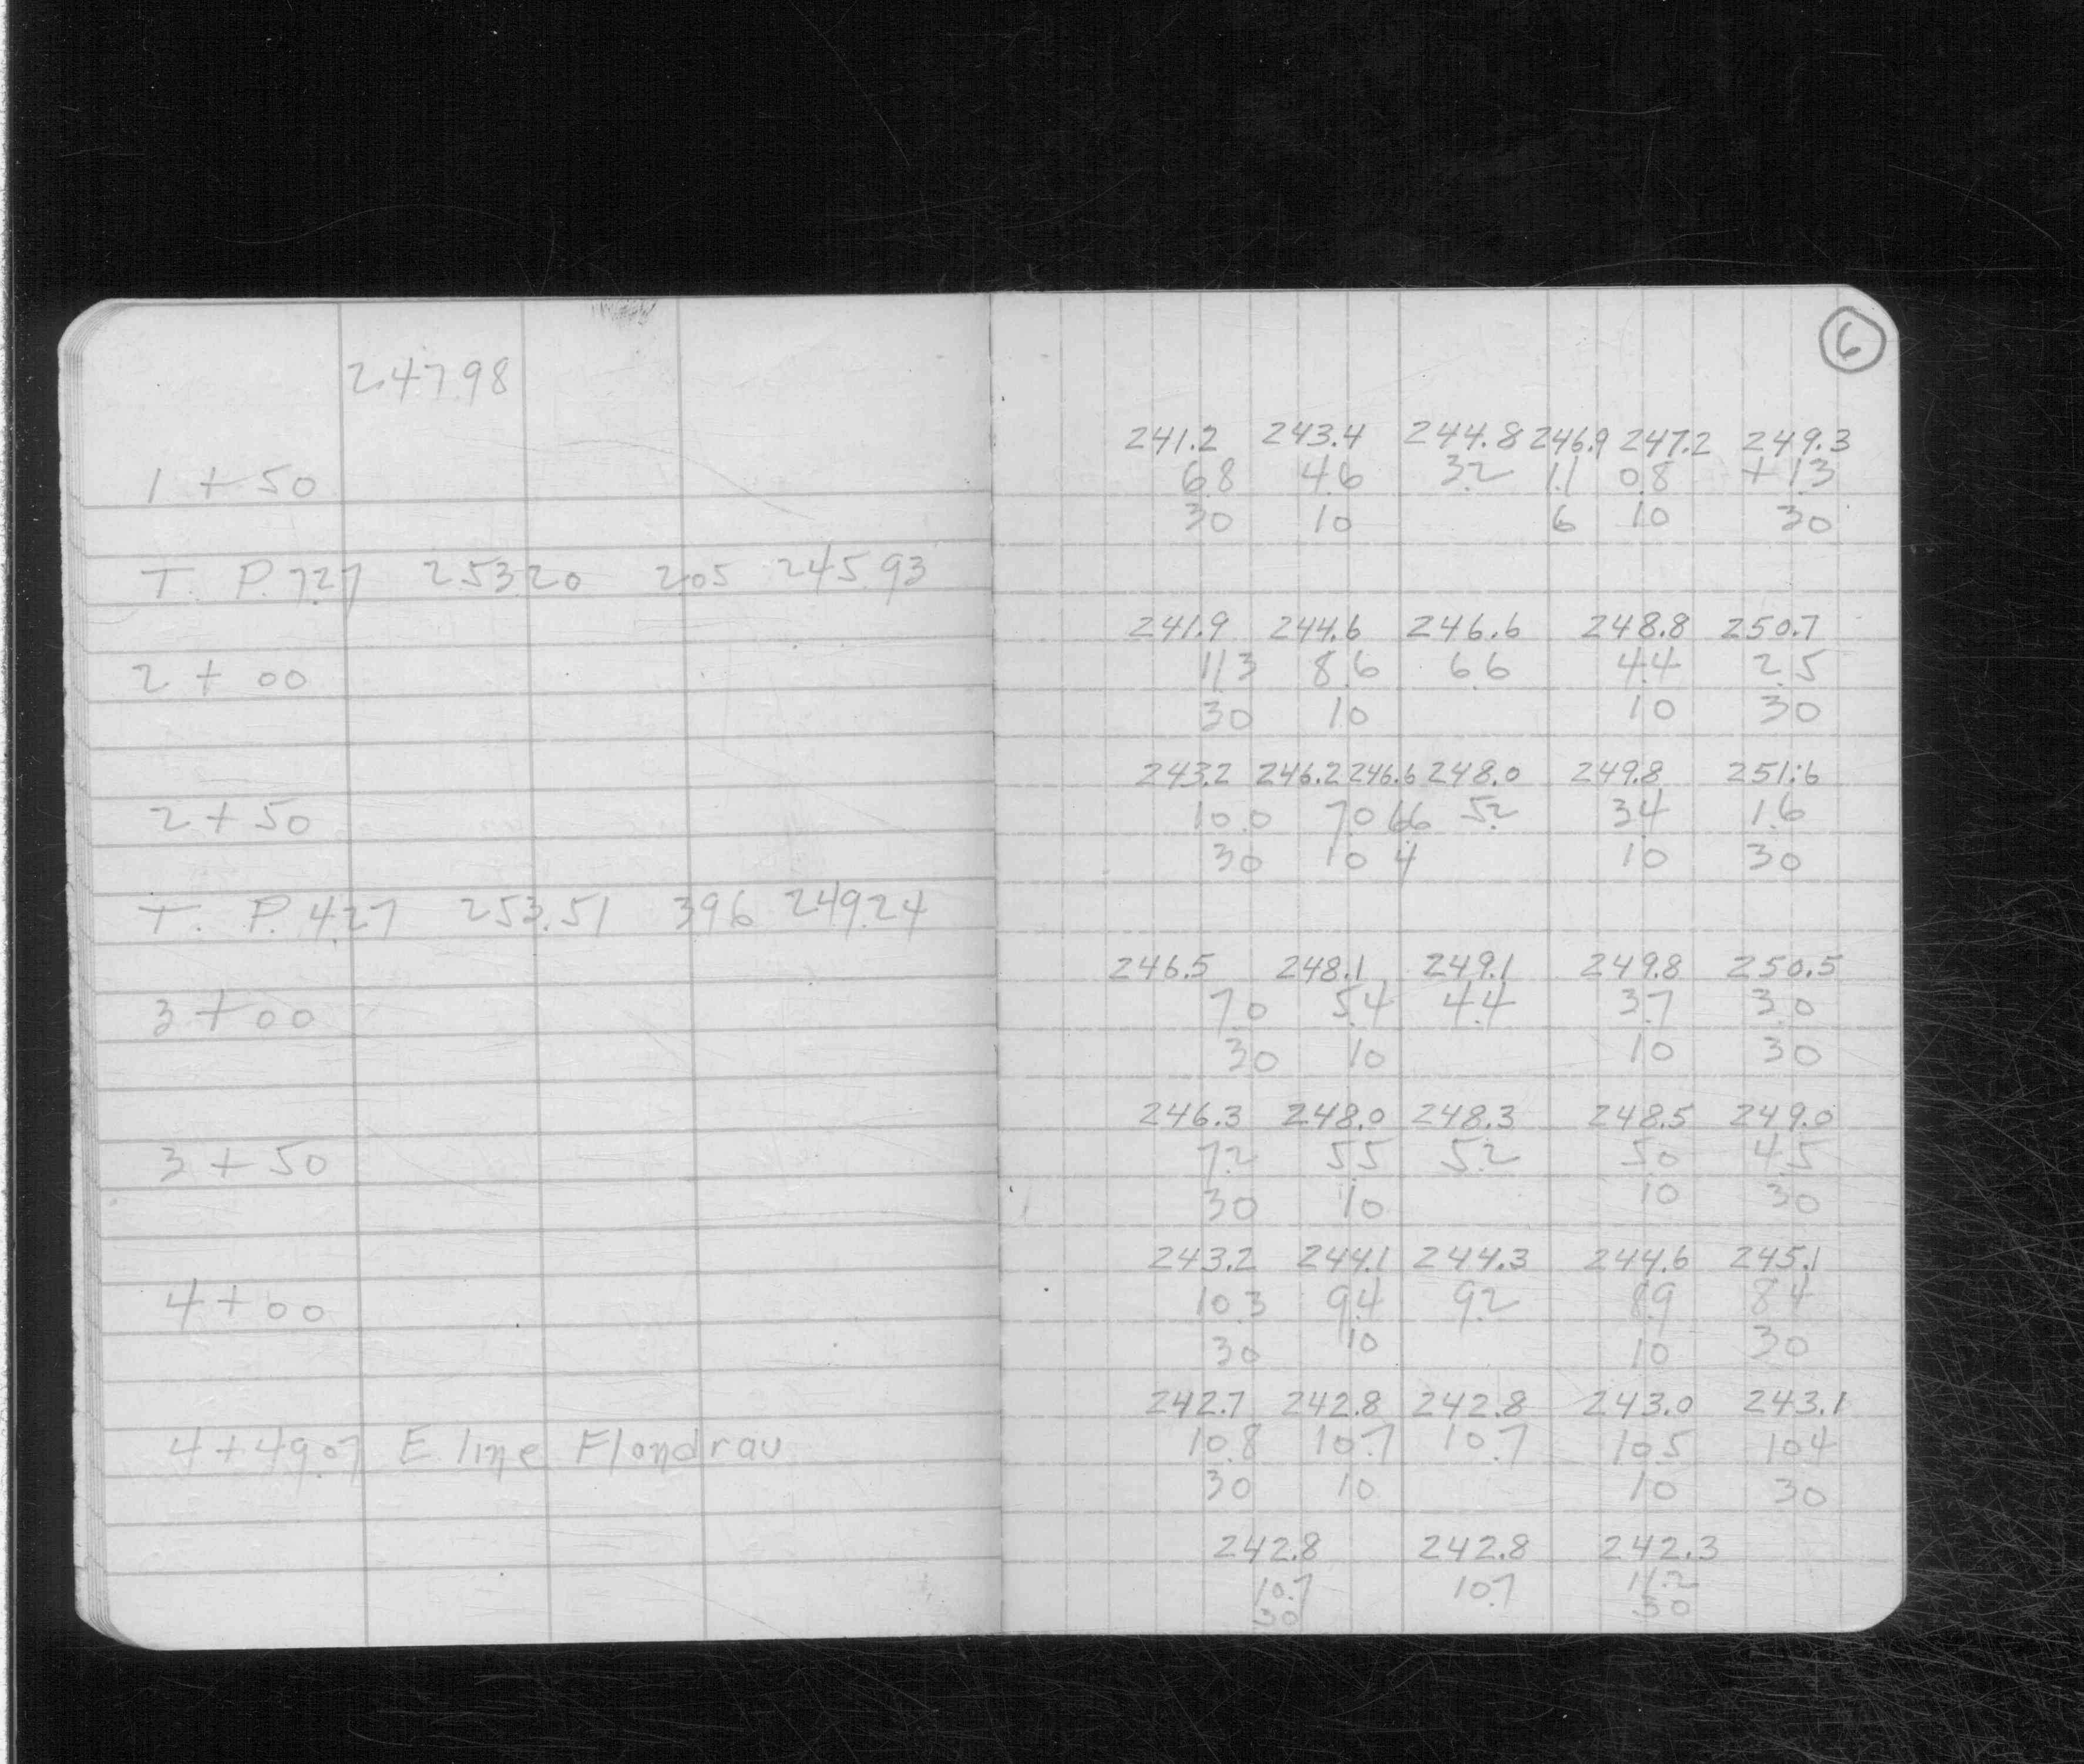 247.98
1 + 50
T. P. 7.27 253.20 2.05 245.93
2 + 00
2 + 50
T. P. 4.27 253.51 3.96 249.24
3 + 00
3 + 50
4 + 00
4 + 49.07 E. line Flandrau
6
241.2 243.4 244.8 246.9 247.2 249.3
6.8 4.6 3.2 1.1 0.8 + 1.3
30 10 6 10 30
241.9 244.6 246.6 248.8 250.7
11.3 8.6 6.6 4.4 2.5
30 10 10 30
243.2 246.2 246.6 248.0 249.8 251.6
10.0 7.0 6.6 5.2 3.4 1.6
30 10 4 10 30
246.5 248.1 249.1 249.8 250.5
7.0 5.4 4.4 3.7 3.0
30 10 10 30
246.3 248.0 248.3 248.5 249.0
7.2 5.5 5.2 5.0 4.5
30 10 10 30
243.2 244.1 244.3 244.6 245.1
10.3 9.4 9.2 8.9 8.4
30 10 10 30
242.7 242.8 242.8 243.0 243.1
10.8 10.7 10.7 10.5 10.4
30 10 10 30
242.8 242.8 242.3
10.7 10.7 11.2
30 30